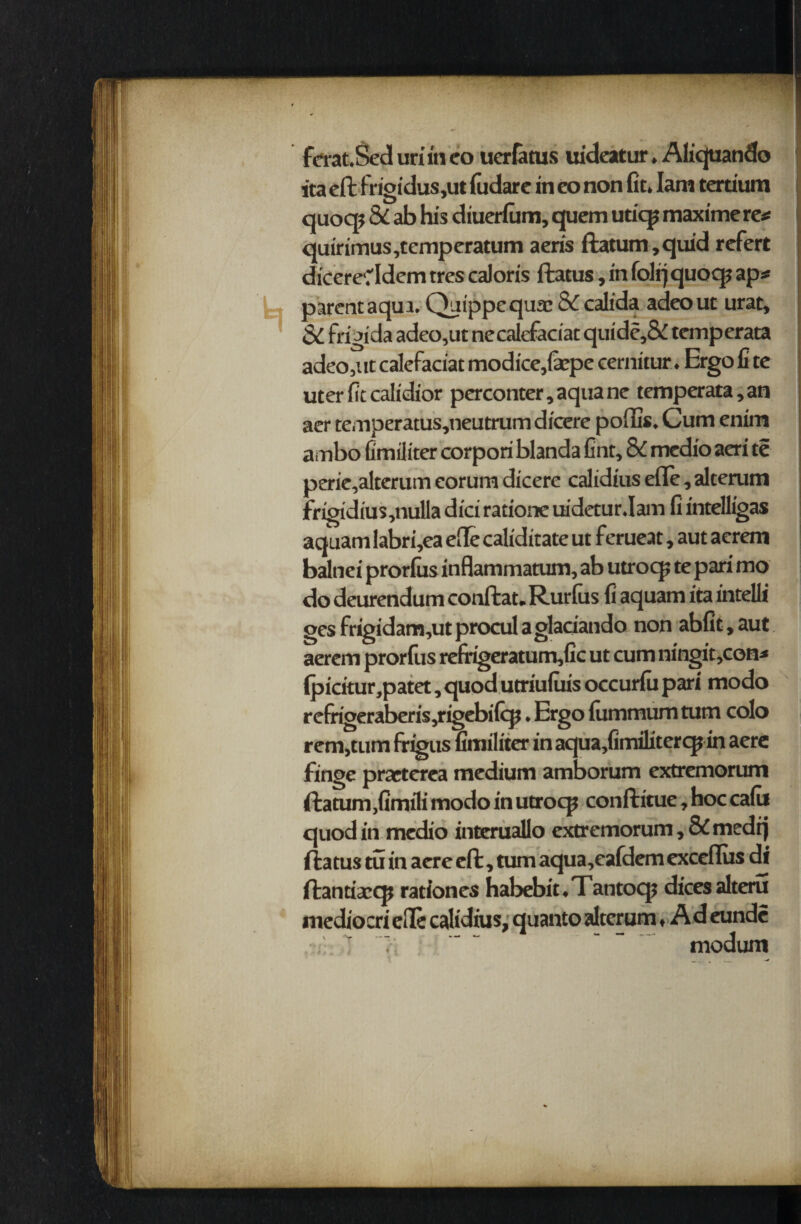 ferat.Sed uri in eo uerſatus uideatur. Aliquando
ita eſt frigidus,ut ſudare in eo non ſit. Iam tertium
quoqꝫ & ab his diuerſum, quem utiqꝫ maxime re⸗
quirimus,temperatum aeris ſtatum,quid refert
dicere?Idem tres caloris ſtatus, in ſolij quoqꝫ ap⸗
parent aqua. Quippe quæ & calida adeo ut urat,
& frigida adeo,ut ne calefaciat quidē,& temperata
adeo,ut calefaciat modice,ſæpe cernitur. Ergo ſi te
uter ſit calidior perconter, aqua ne temperata, an
aer temperatus,neutrum dicere poſſis. Cum enim
ambo ſimiliter corpori blanda ſint, & medio aeri tē
perie,alterum eorum dicere calidius eſſe, alterum
frigidius,nulla dici ratione uidetur.Iam ſi intelligas
aquam labri,ea eſſe caliditate ut ferueat, aut aerem
balnei prorſus inflammatum, ab utroqꝫ te pari mo
do deurendum conſtat. Rurſus ſi aquam ita intelli
ges frigidam,ut procul a glaciando non abſit, aut
aerem prorſus refrigeratum,ſic ut cum ningit,con⸗
ſpicitur,patet, quod utriuſuis occurſu pari modo
refrigeraberis,rigebiſqꝫ. Ergo ſummum tum colo
rem,tum frigus ſimiliter in aqua,ſimiliterqꝫ in aere
finge præterea medium amborum extremorum
ſtatum,ſimili modo in utroqꝫ conſtitue, hoc caſu
quod in medio interuallo extremorum, & medij
ſtatus tū in aere eſt, tum aqua,eaſdem exceſſus di
ſtantiæqꝫ rationes habebit. Tantoqꝫ dices alterū
mediocri eſſe calidius, quanto alterum. Ad eundē
modum